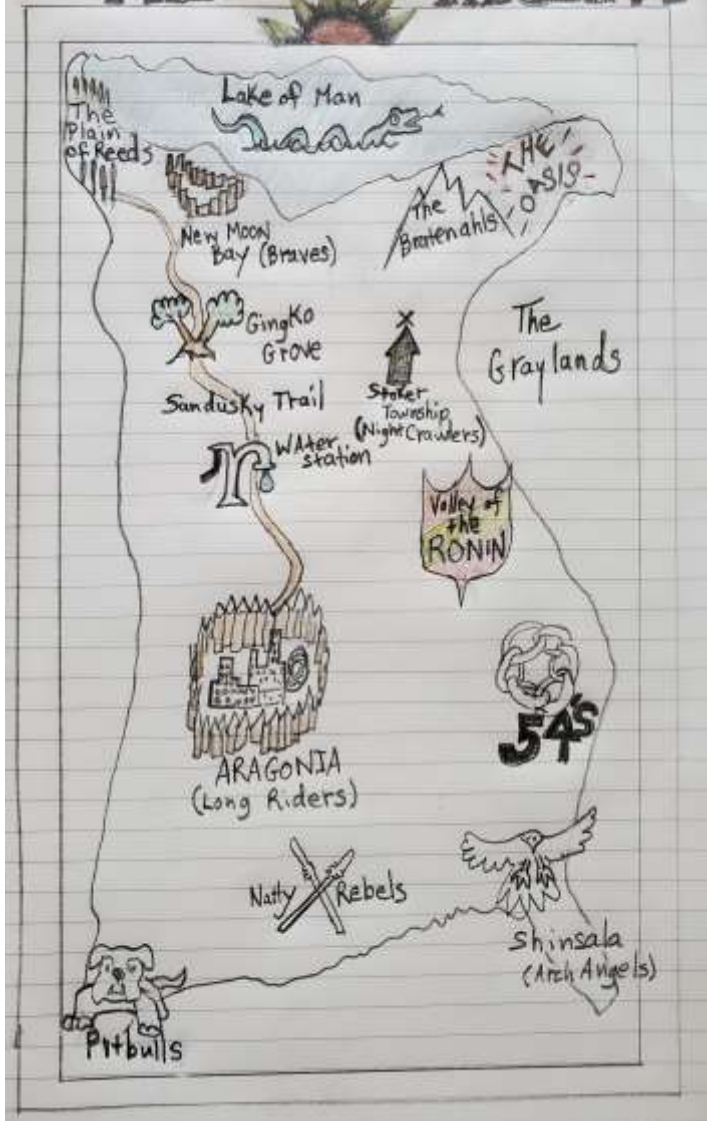 Lake of Man
The
Plain
of Reeds
THE
OASIS
The
Bratenahls
New Moon
Bay (Braves)
GingKo
Grove
The
Graylands
Sandusky Trail
Stoker
Township
(Night Crawlers)
WAter
station
Valley of
the
RONIN
54's
ARAGONIA
(Long Riders)
Natty Rebels
Shinsala
(Arch Angels)
Pitbulls